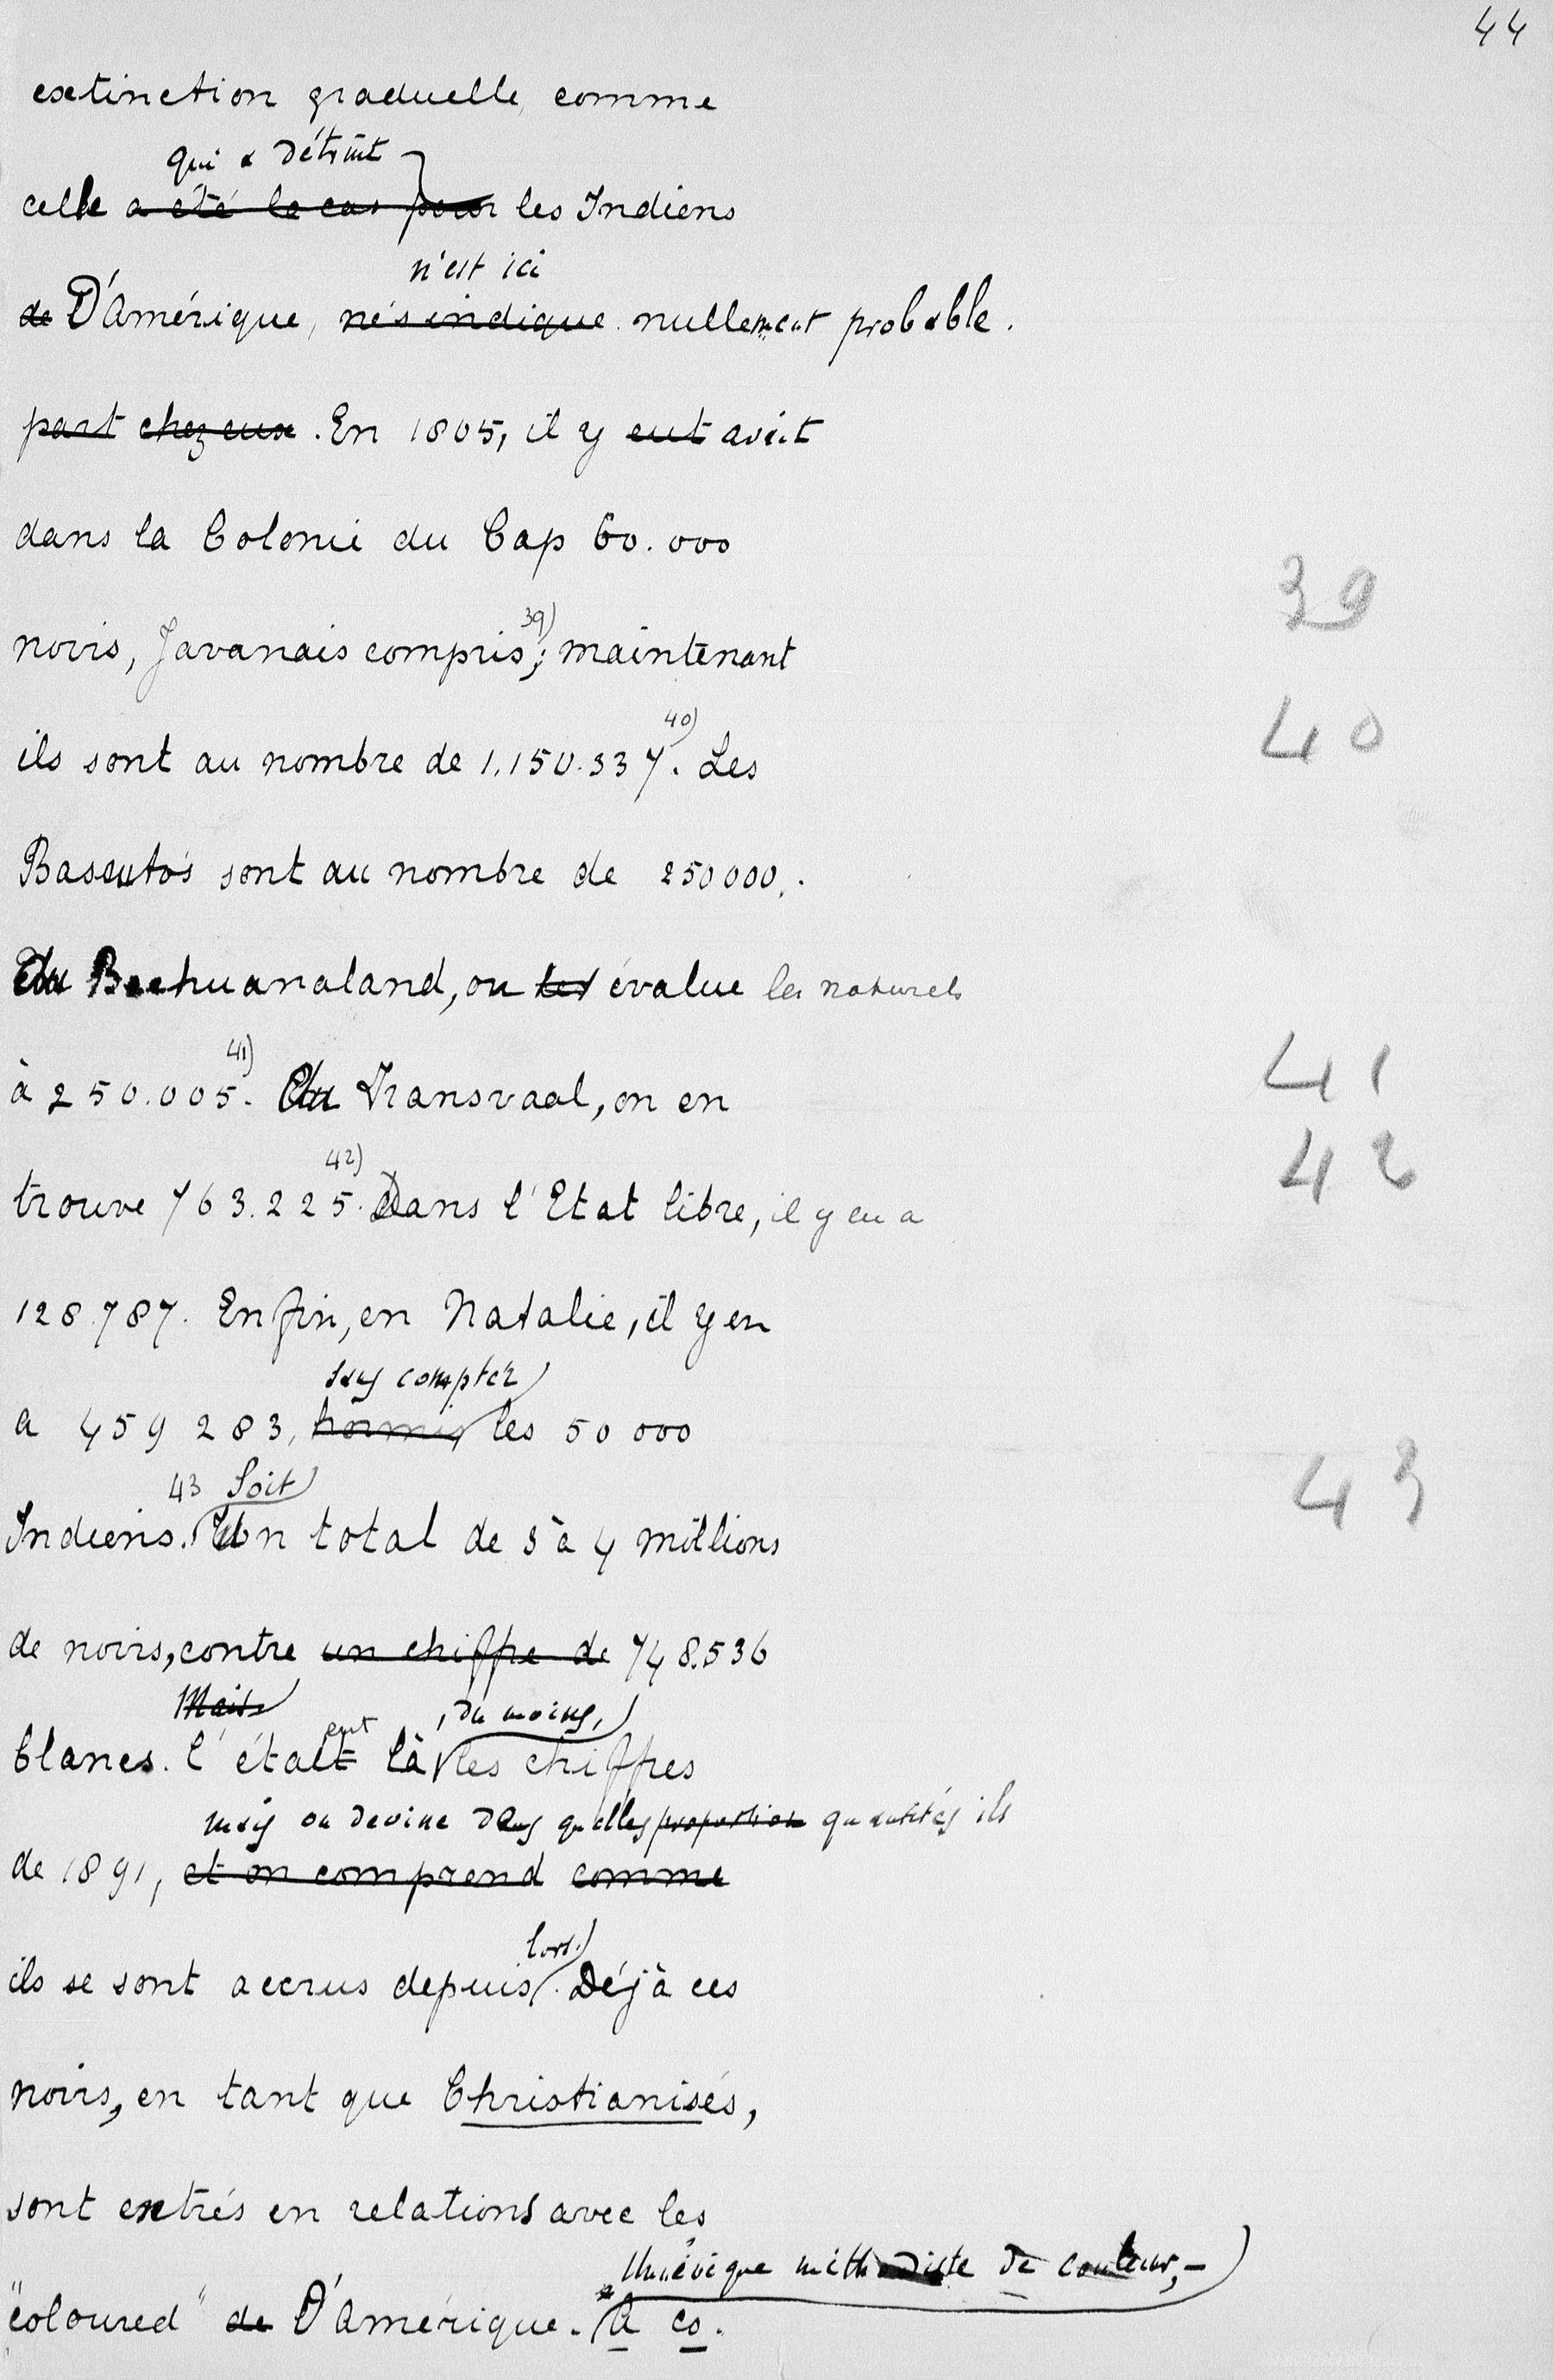 44
extinction graduelle, comme
qui a détruit
celle a été le cas pour les Indiens
n'est ici
de D'Amérique, nés indique nullement probable.
part chez eux. En 1805, il y eut avait
dans la Colonie du Cap 60.000
39
39)
noirs, Javanais compris; maintenant
40
40)
ils sont au nombre de 1.150.337. Les
Basutos sont au nombre de 250000.
Au Bechuanaland, on les évalue les naturels
41
41)
à 250.005. Au Transvaal, on en
42
42)
trouve 763.225. Dans l'Etat libre, il y en a
128.787. Enfin, en Natalie, il y en
sans compter
a 459 283, hormis les 50 000
43
43 Soit
Indiens. Un total de 3 à 4 millions
de noirs, contre un chiffre de 748.536
Mais
ent , du moins,
blancs. C'était là les chiffres
mais on devine dans quelles proportion quantités ils
de 1891, et on comprend comme
lors.
ils se sont accrus depuis. Déjà ces
noirs, en tant que Christianisés,
sont entrés en relations avec les
Un évêque méthodiste de couleur,-
"coloured" de D'Amérique. A co.